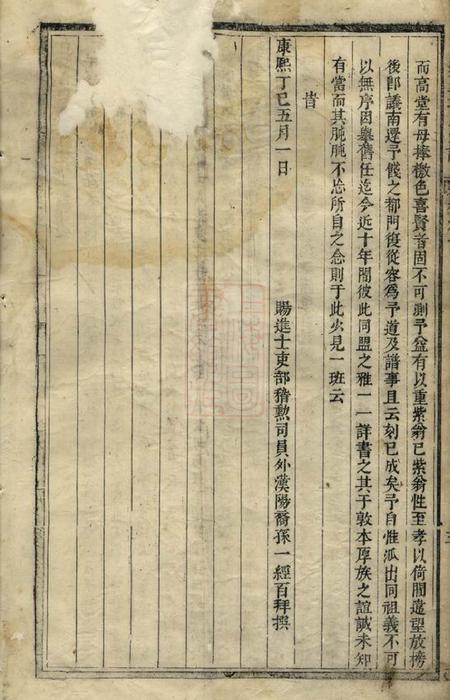 而高堂有母捧檄色喜賢者固不可測予益有以重紫翁已紫翁性至孝以倚閭遙望放榜
後即議南還予餞之都門復從容為予道及譜事且云刻已成矣予自惟派出同祖義不可
以無序因舉舊任迄今近十年間彼此同盟之雅一一詳書之其于敦本厚族之誼誠未知
有當而其肫肫不忘所自之念則于此少見一班云
旹
康熙丁巳五月一日
賜進士吏部稽勳司員外漢陽裔孫一經百拜撰